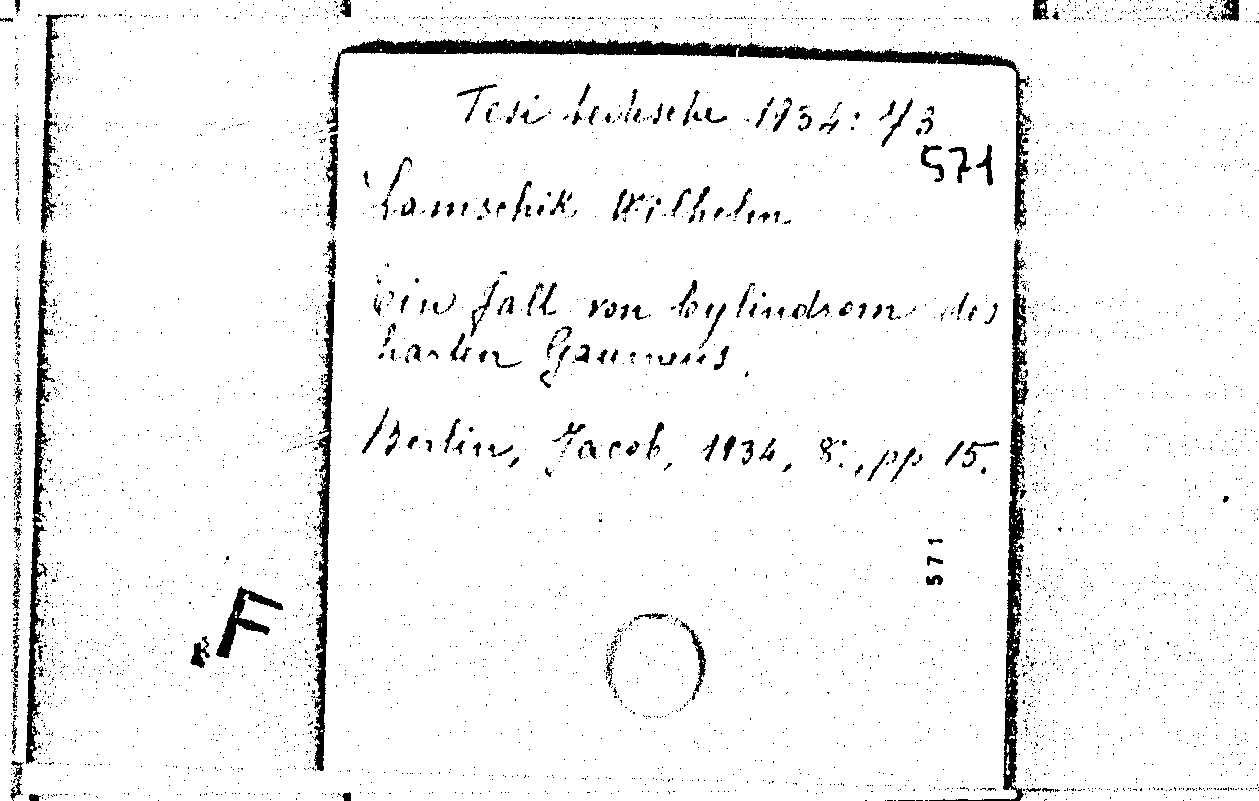 Tesi tedesche 1934: 1/3
571
Lamschik Wilhelm
Ein Fall von Cylindrom des
harten Gaumens.
Berlin, Jacob, 1934, 8°., pp 15.
571
F